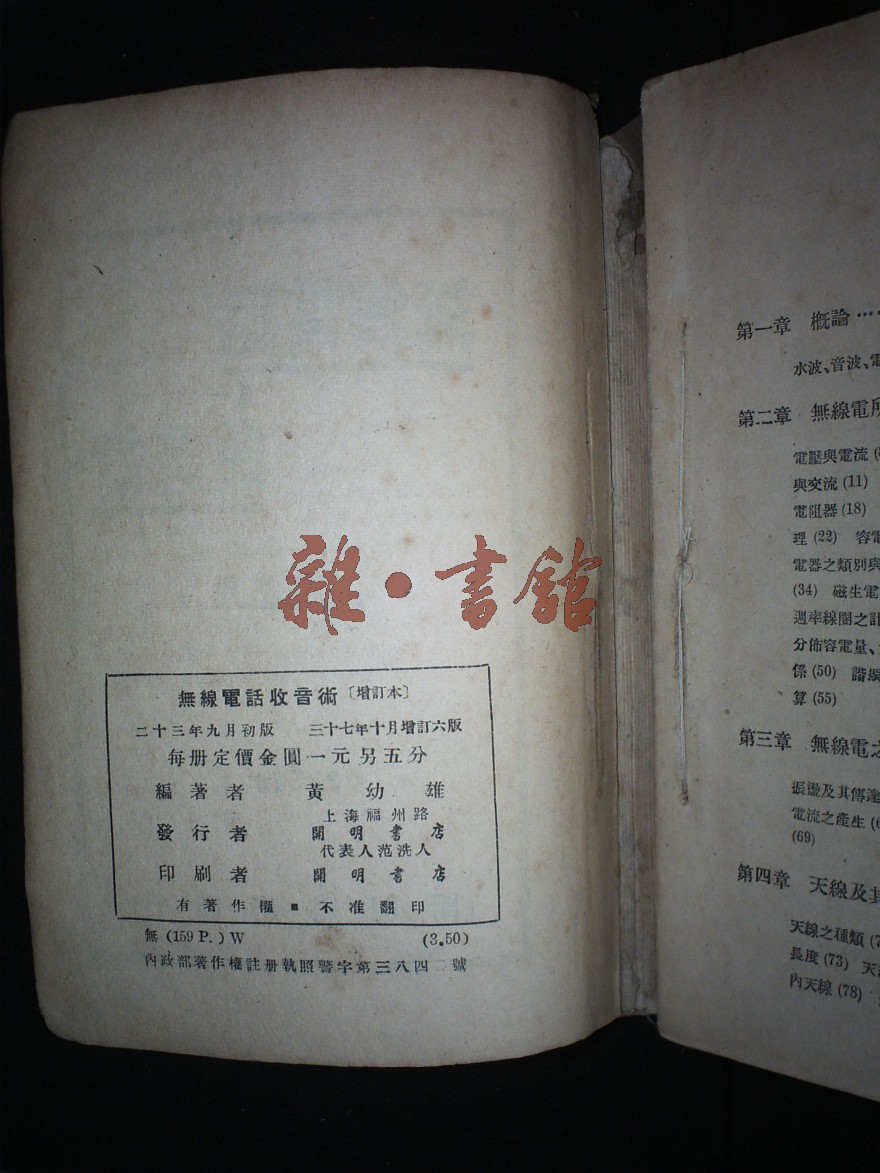 雜·書館
無線電話收音術〔增訂本〕
二十三年九月初版 三十七年十月增訂六版
每册定價金圓一元另五分
編著者 黃幼雄
上海福州路
發行者 開明書店
代表人范洗人
印刷者 開明書店
有著作權 ■ 不准翻印
無 (159 P.) W (3.50)
內政部著作權註册執照警字第三八四 號
第一章 概論……
水波、音波、電
第二章 無線電所
電壓與電流
與交流 (11)
電阻器 (18)
理 (22) 容電
電器之類別與
(34) 磁生電
週率線圈之計
分佈容電量、
係 (50) 諧振
算 (55)
第三章 無線電之
振盪及其傳達
電流之產生
(69)
第四章 天線及其
天線之種類
長度 (73) 天
內天線 (78)